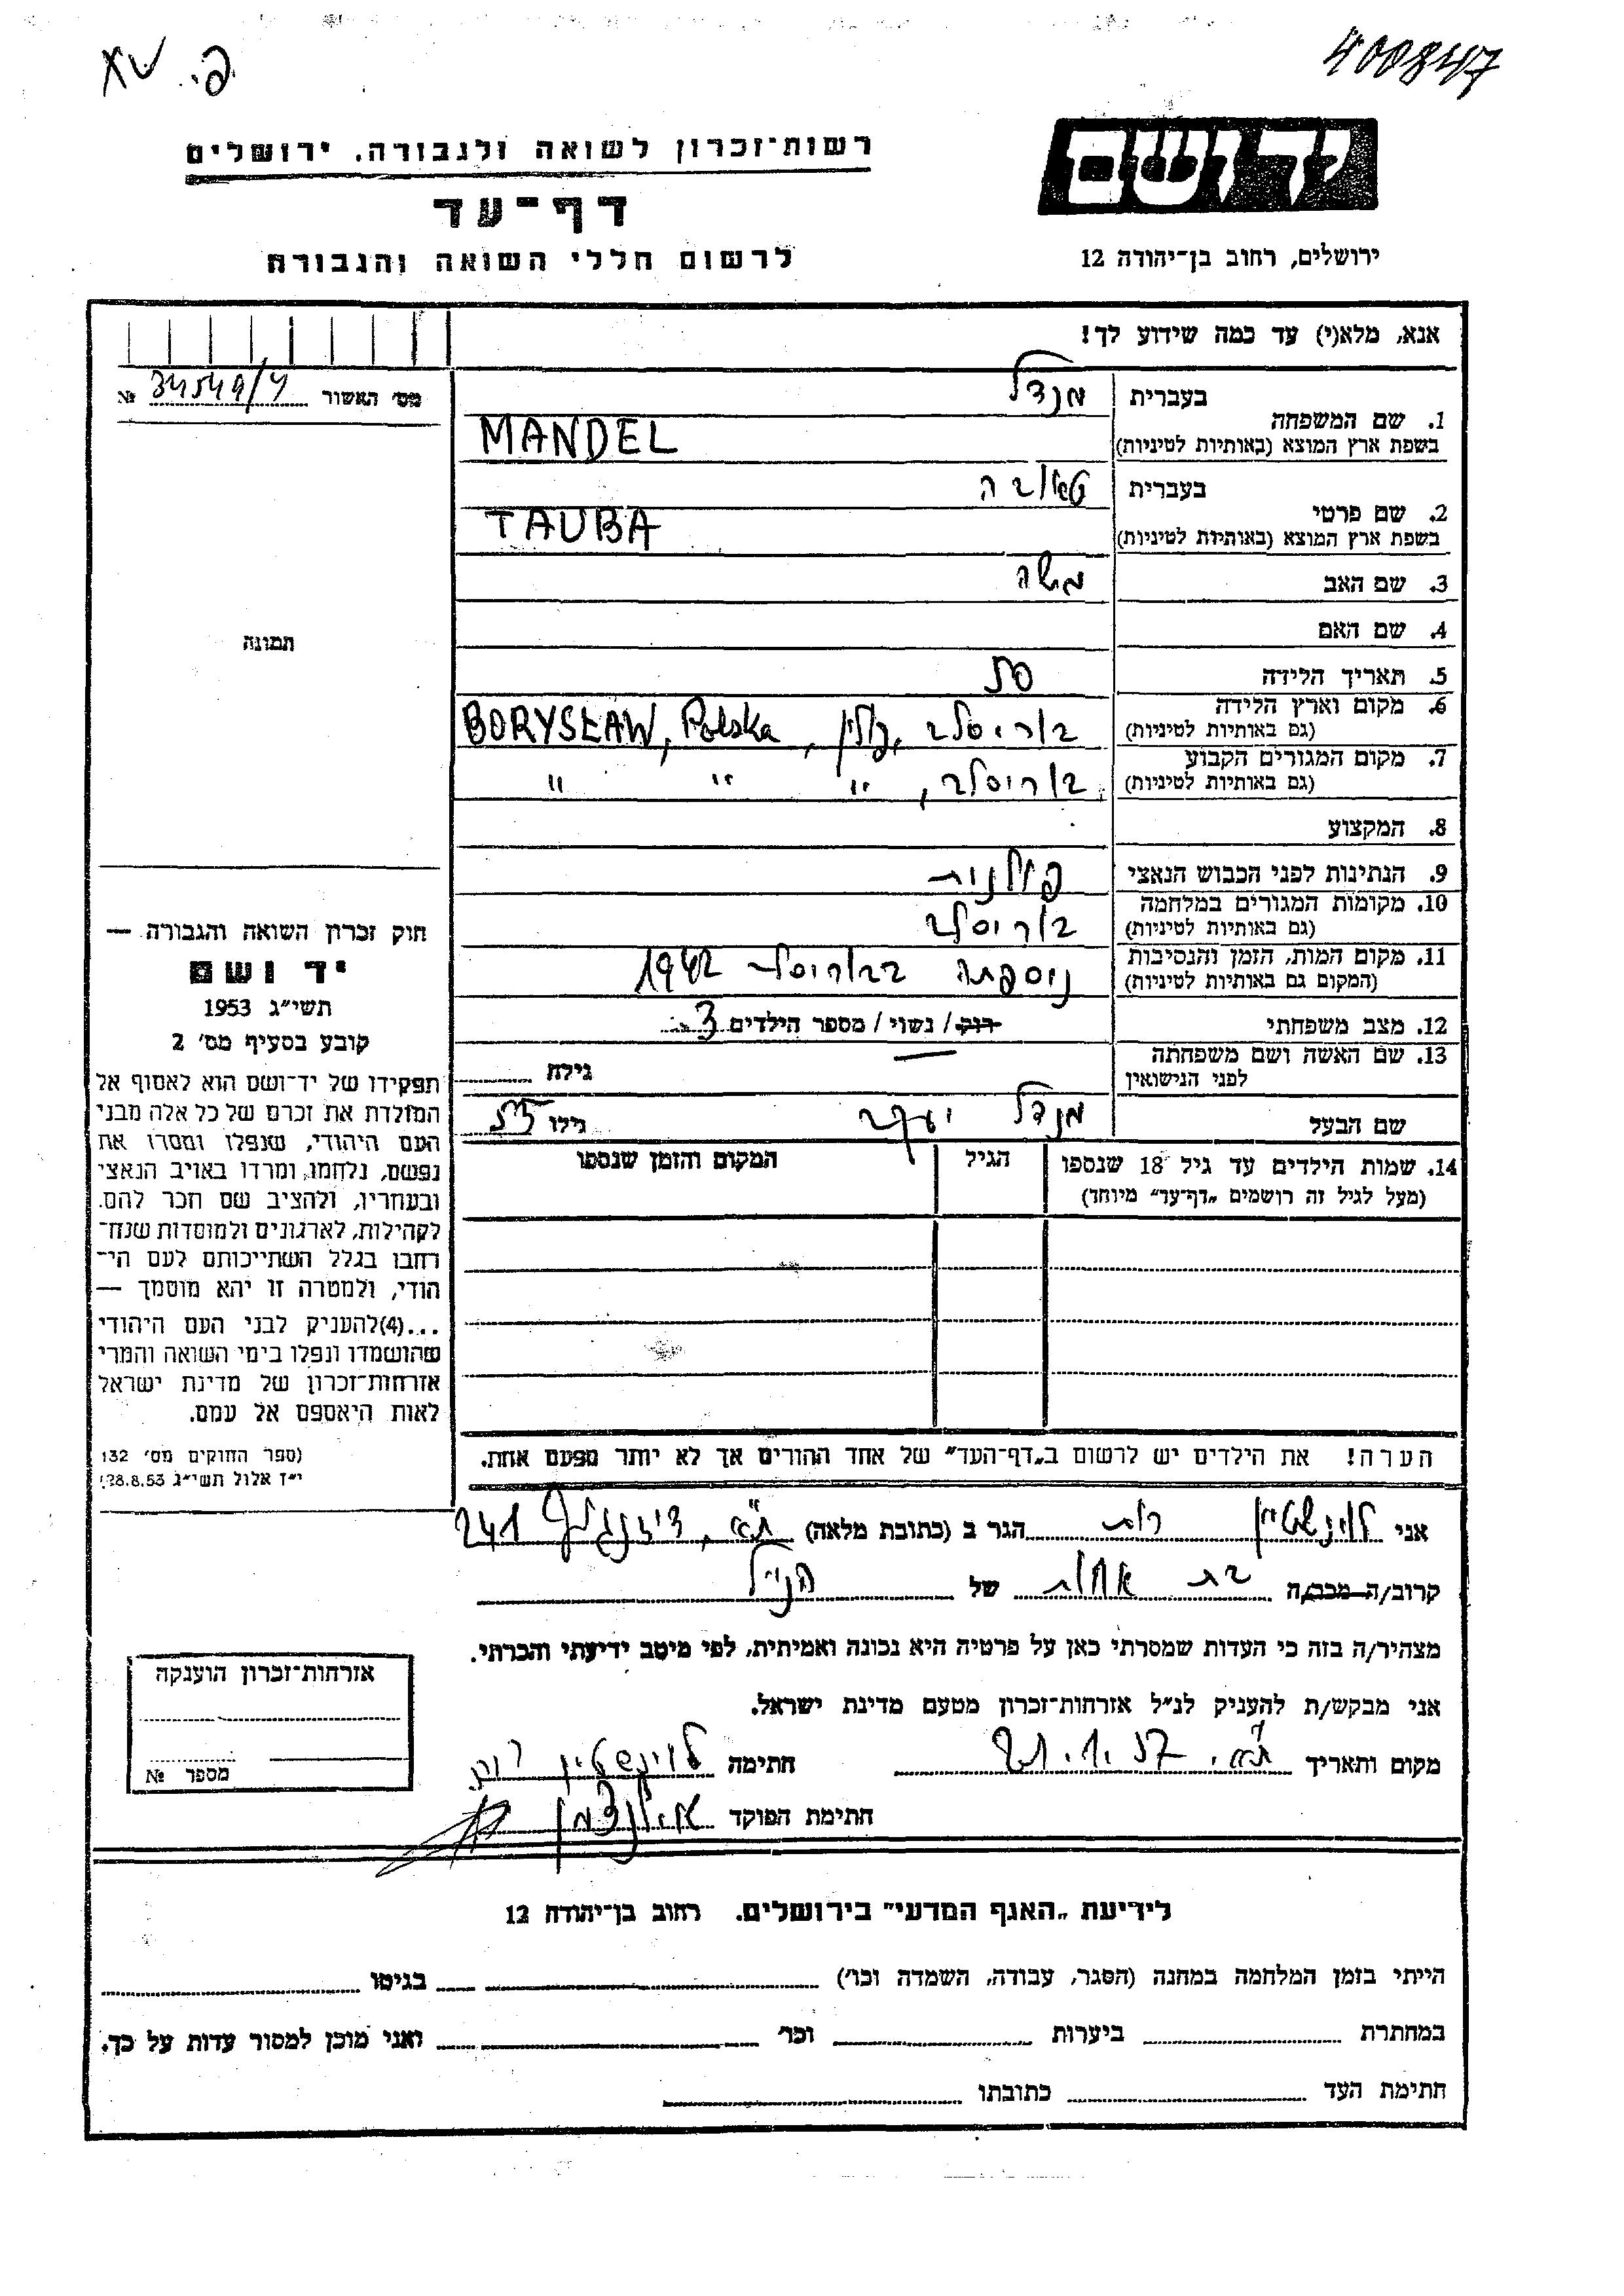 פי. שא
400847
רשות־זכרון לשואה ולגבורה, ירושלים
יד ושם
דף־עד
לרשום חללי השואה והגבורה
ירושלים, רחוב בן־יהודה 12
אנא, מלא(י) עד כמה שידוע לך!
מס׳ האשור 34549/4 №
1. שם המשפחה
בעברית מנדל
בשפת ארץ המוצא (באותיות לטיניות) MANDEL
2. שם פרטי
בעברית טאובה
בשפת ארץ המוצא (באותיות לטיניות) TAUBA
3. שם האב משה
4. שם האם
תמונה
5. תאריך הלידה
6. מקום וארץ הלידה
(גם באותיות לטיניות) בוריסלב, פולין, BORYSŁAW, Polska
7. מקום המגורים הקבוע
(גם באותיות לטיניות) בוריסלב, " " "
8. המקצוע
9. הנתינות לפני הכבוש הנאצי פולנית
10. מקומות המגורים במלחמה
(גם באותיות לטיניות) בוריסלב
11. מקום המות, הזמן והנסיבות
(המקום גם באותיות לטיניות) ניספתה בבוריסלב 1942
12. מצב משפחתי רוק / נשוי / מספר הילדים 3
13. שם האשה ושם משפחתה
לפני הנישואין גילה
שם הבעל מנדל יעקב גילו
14. שמות הילדים עד גיל 18 שנספו
(מעל לגיל זה רושמים „דף־עד״ מיוחד)
הגיל
המקום והזמן שנספו
חוק זכרון השואה והגבורה —
יד ושם
תשי״ג 1953
קובע בסעיף מס׳ 2
תפקידו של יד־ושם הוא לאסוף אל
המולדת את זכרם של כל אלה מבני
העם היהודי, שנפלו ומסרו את
נפשם, נלחמו ומרדו באויב הנאצי
ובעוזריו, ולהציב שם וזכר להם,
לקהילות, לארגונים ולמוסדות שנח־
רבו בגלל השתייכותם לעם הי־
הודי, ולמטרה זו יהא מוסמך —
...(4) להעניק לבני העם היהודי
שהושמדו ונפלו בימי השואה והמרי
אזרחות־זכרון של מדינת ישראל
לאות היאספם אל עמם.
(ספר החוקים מס׳ 132
י״ז אלול תשי״ג 28.8.53)
הערה! את הילדים יש לרשום ב„דף־העד״ של אחד ההורים אך לא יותר מפעם אחת.
אני לוינשטיין רות הגר ב (כתובת מלאה) ת״א, דיזנגוף 241
קרוב/ה מכר/ה בת אחות של הנ״ל
מצהיר/ה בזה כי העדות שמסרתי כאן על פרטיה היא נכונה ואמיתית, לפי מיטב ידיעתי והכרתי.
אני מבקש/ת להעניק לנ״ל אזרחות־זכרון מטעם מדינת ישראל.
מקום ותאריך ת״א, חתימה לוינשטיין רות
חתימת הפוקד
אזרחות־זכרון הוענקה
מספר №
לידיעת „האגף המדעי״ בירושלים, רחוב בן־יהודה 12
הייתי בזמן המלחמה במחנה (הסגר, עבודה, השמדה וכו׳) בגיטו
במחתרת ביערות וכו׳ ואני מוכן למסור עדות על כך.
חתימת העד כתובתו